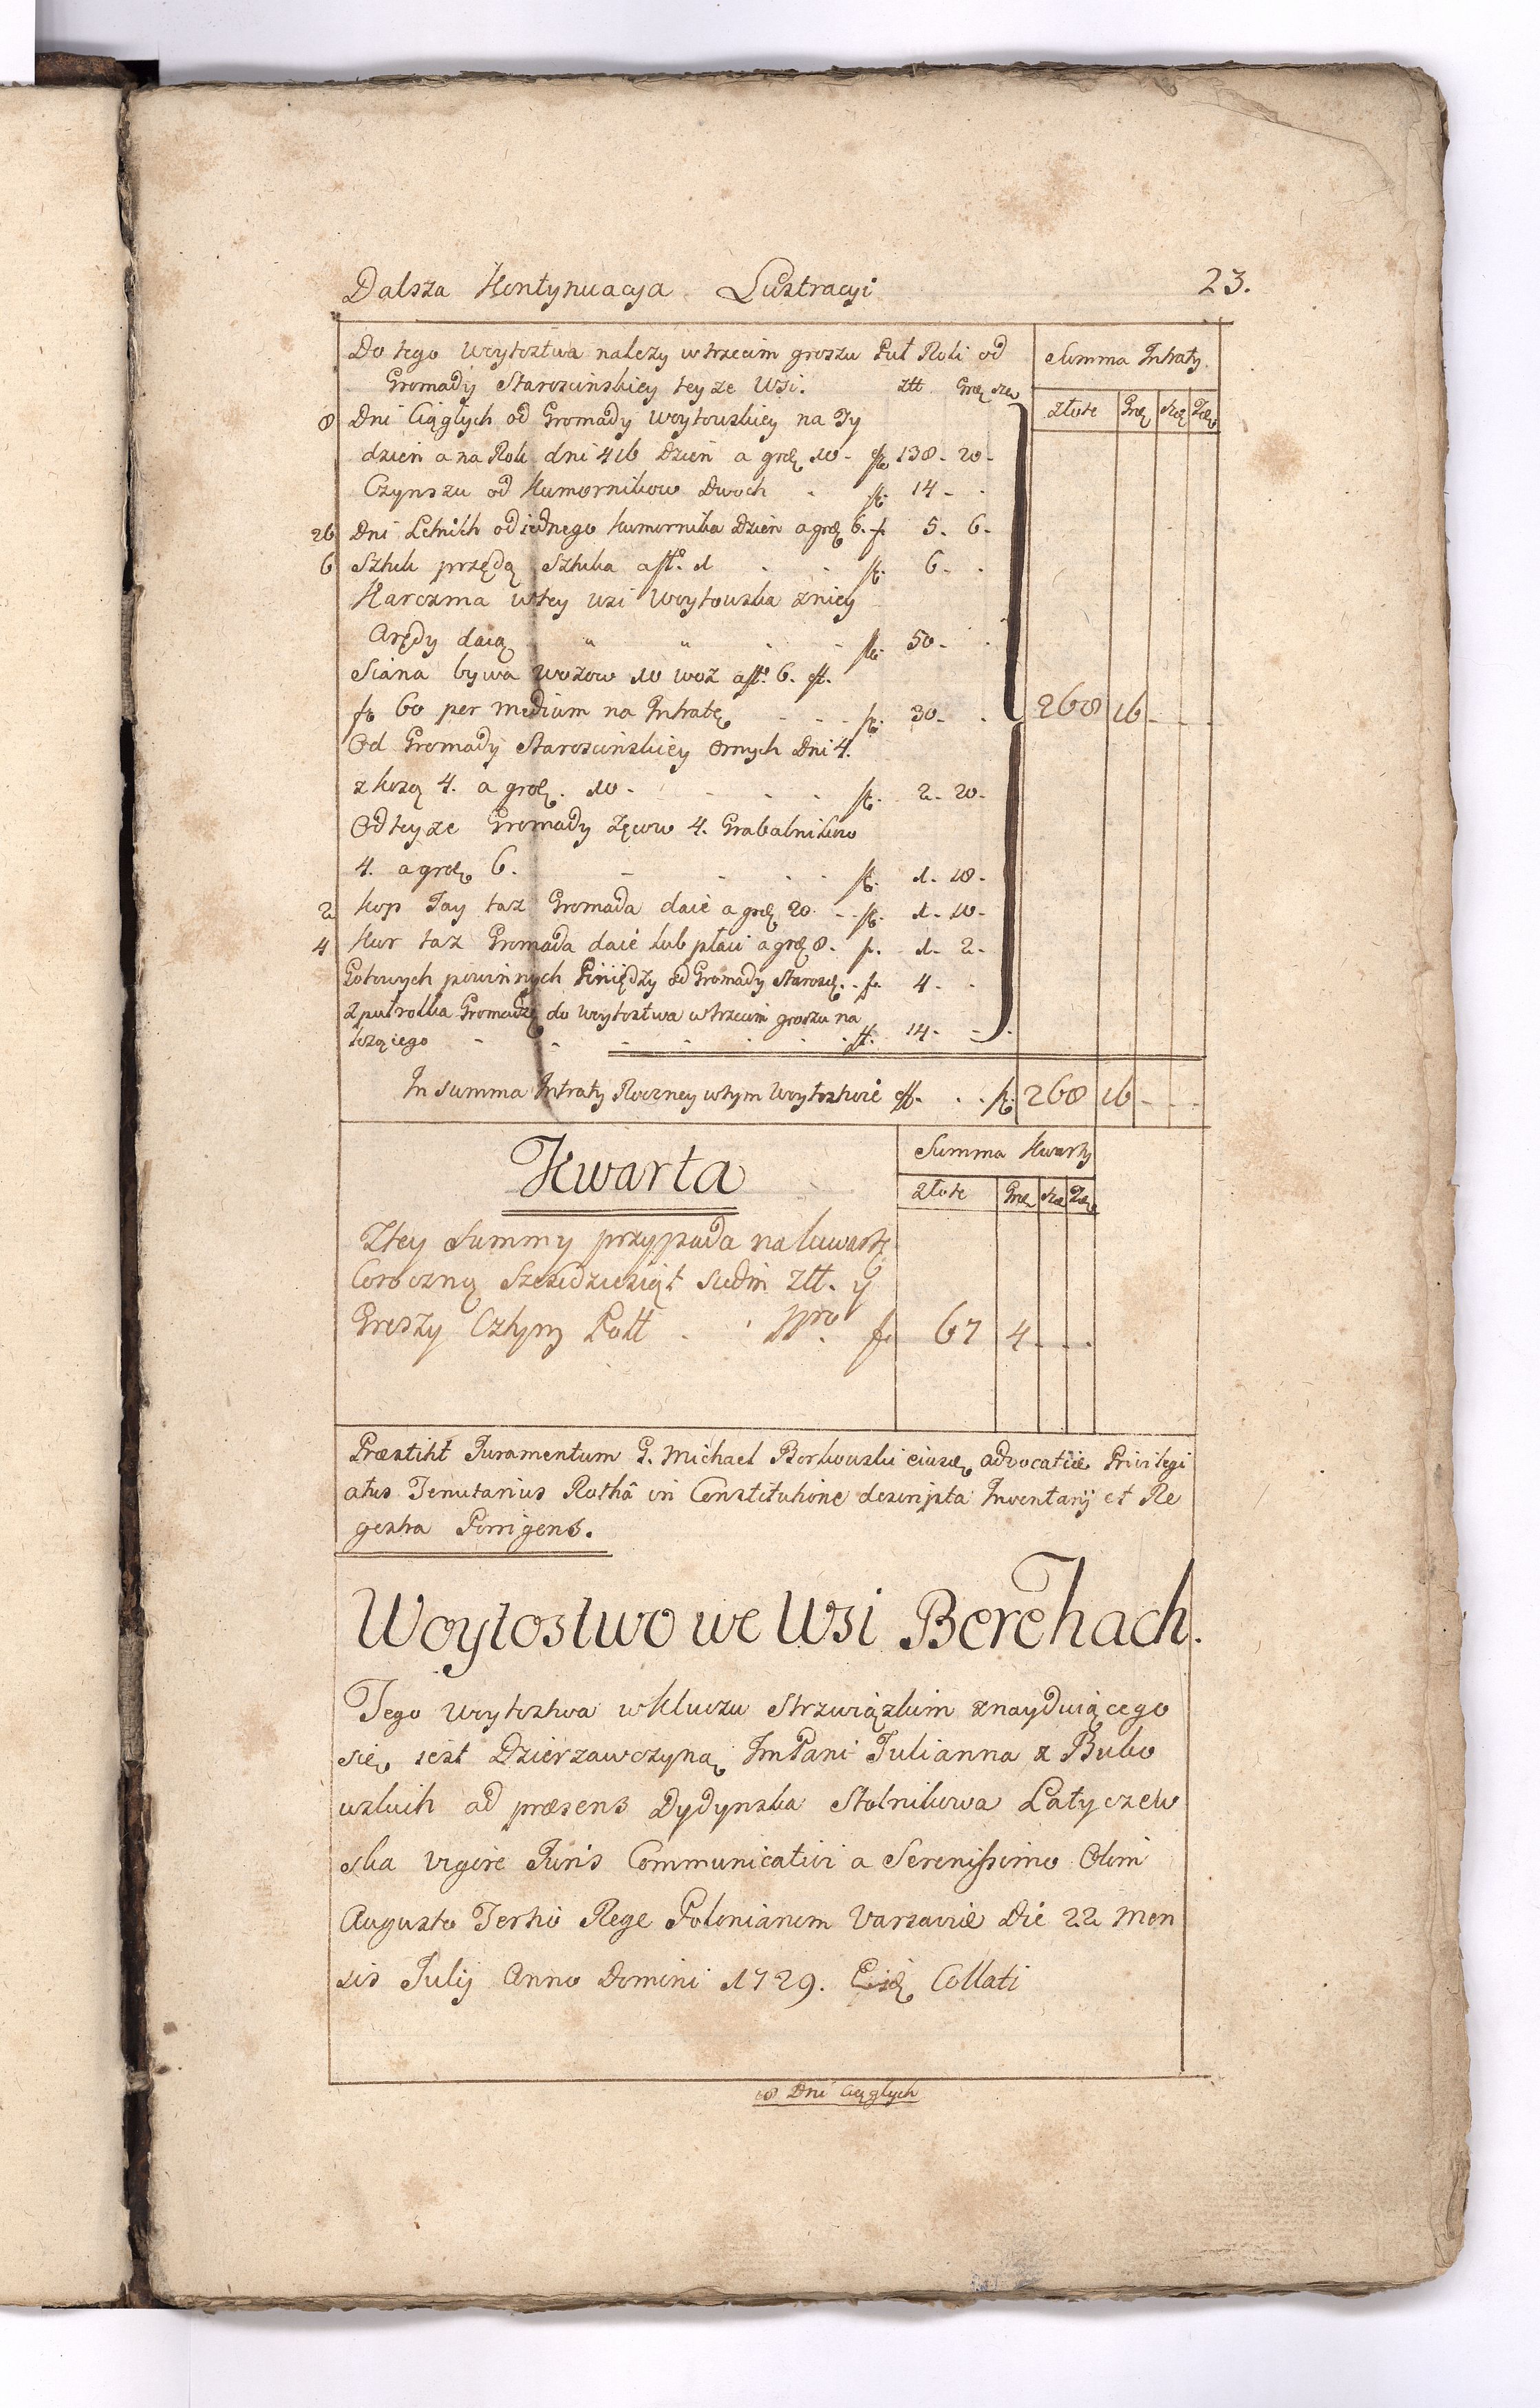 Dalsza Kontynuacya Lustracyi 23.
Do tego Woytostwa należy w trzecim groszu Puł Roli od
Gromady Starościńskiey teyże Wsi. złł Gro: sze
Summa Intraty.
złote Gro: sze:
8 Dni Ciągłych od Gromady Woytowskiey na Ty
dzień a na Rok dni 416 Dzień a gro: 10 - fl: 138 - 20 -
Czynszu od Kumornikow Dwoch - fl: 14 -
26 Dni Letnich od iednego Kumornika Dzień a gro: 6. f. 5 - 6 -
6 Sztuk przędą Sztuka a fl: 1 - fl: 6 -
Karczma w tey wsi Woytowska z niey
Arędy daią " " fl: 50 -
Siana bywa wozow 10 woz a fl: 6. ff.
fl 60 per medium na Intratę - - - fl: 30 - 268 16 - - -
Od Gromady Starościńskiey Ornych Dni 4.
z kosą 4. a gro: 10 - fl: 2 - 20 -
Od teyże Gromady Żęcow 4. Grabalnikow
4. a gro: 6. - fl: 1 - 18 -
2 Kop Jay taż Gromada daie a gro: 20 - fl: 1 - 10 -
4 Kur taż Gromada daie lub płaci a gro: 8. f. 1 - 2 -
Gotowych powinnych Pieniędzy od Gromady Starość: - f. 4 -
Z pułrolka Gromadzę do Woytostwa w trzecim groszu na
leżącego - - - - - fl. 14 -
In summa Intraty Roczney w tym Woytostwie ff. - - fl: 268 16 - - -
Kwarta
Summa Kwarty
Złote Gro: sze:
Z tey Summy przypada na kwartę
Coroczną Sześćdziesiąt siedm złł. y
Groszy Cztyry Poll - - ppro fl 67 4 - - -
Præstitit Juramentum G. Michael Borkowski eiusd: advocatiæ Privilegi
atus Tenutarius Rothâ in Constitutione descripta Inventarij et Re
gestra Porrigens.
Woytostwo we Wsi Berehach.
Tego Woytostwa w Kluczu Strzwiązkim znayduiącego
się, iest Dzierżawczyną ImPani Julianna z Buko
wskich ad præsens Dydynska Stolnikowa Latyczew
ska vigore Juris Communicativi a Serenissimo Olim
Augusto Tertio Rege Poloniarum Varsaviæ Die 22 Men
sis Julij Anno Domini 1729. Eid: Collati
8 Dni Ciągłych